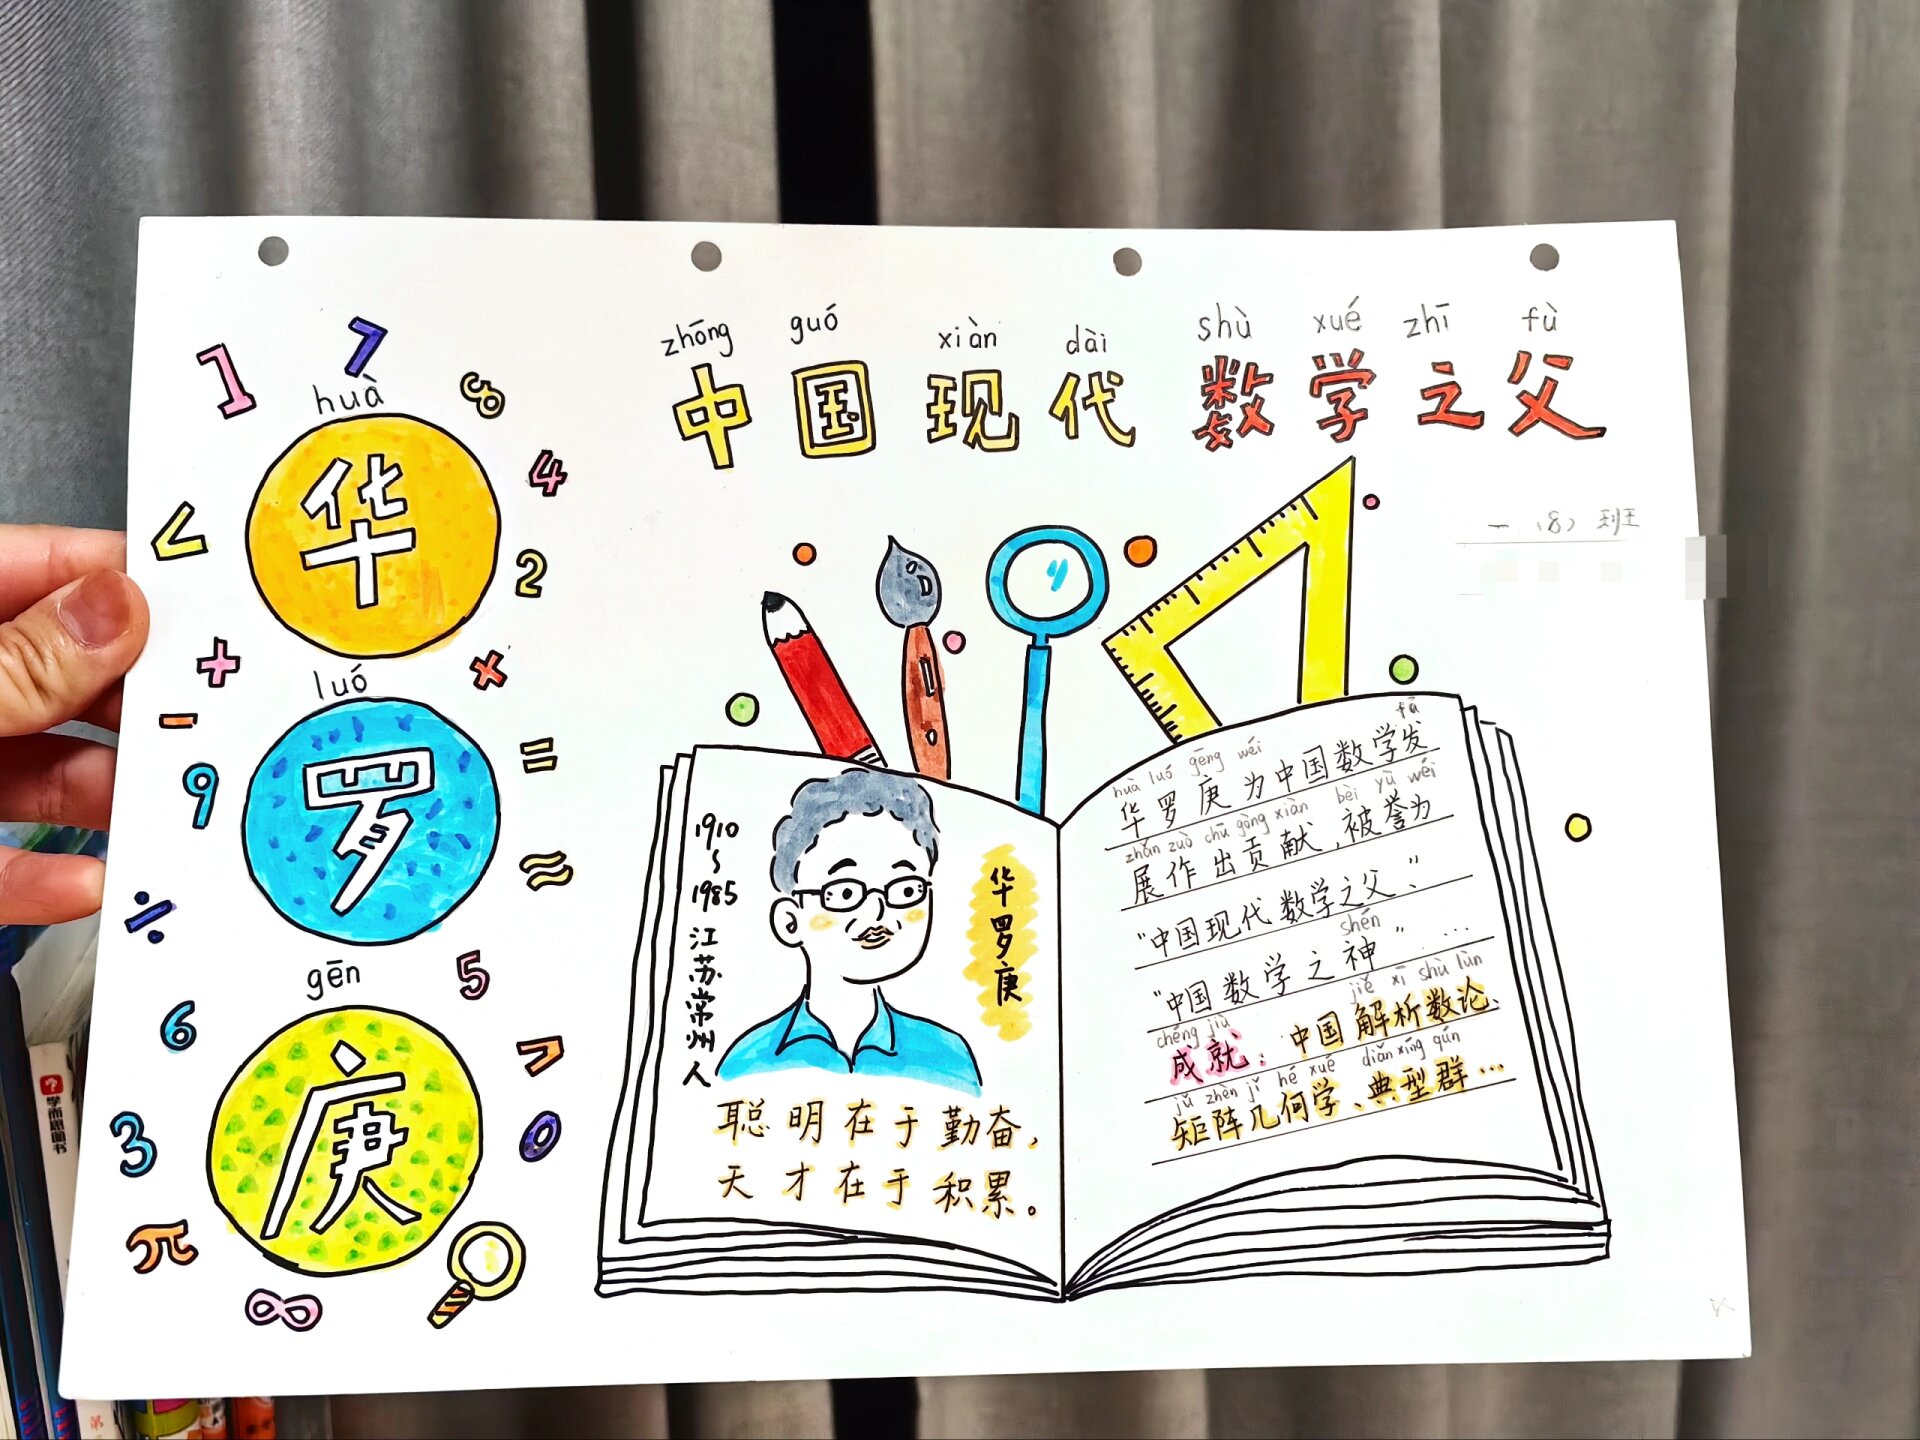 zhōng guó xiàn dài shù xué zhī fù
中国现代数学之父
一（8）班
1 7 8
huà
华
4
<
2
+ ×
luó
罗
-
=
9
≈
÷
gēn
庚
5
6
7
3
0
π
∞
1910
~
1985
江苏常州人
华罗庚
聪明在于勤奋,
天才在于积累。
fā
huà luó gēng wéi
华罗庚为中国数学发
zhǎn zuò chū gòng xiàn bèi yù wéi
展作出贡献,被誉为
“中国现代数学之父”、
shén
“中国数学之神”……
jiě xī shù lùn
chéng jiù
成就：中国解析数论、
jǔ zhèn jǐ hé xué diǎn xíng qún
矩阵几何学、典型群…
学而思图书
第一